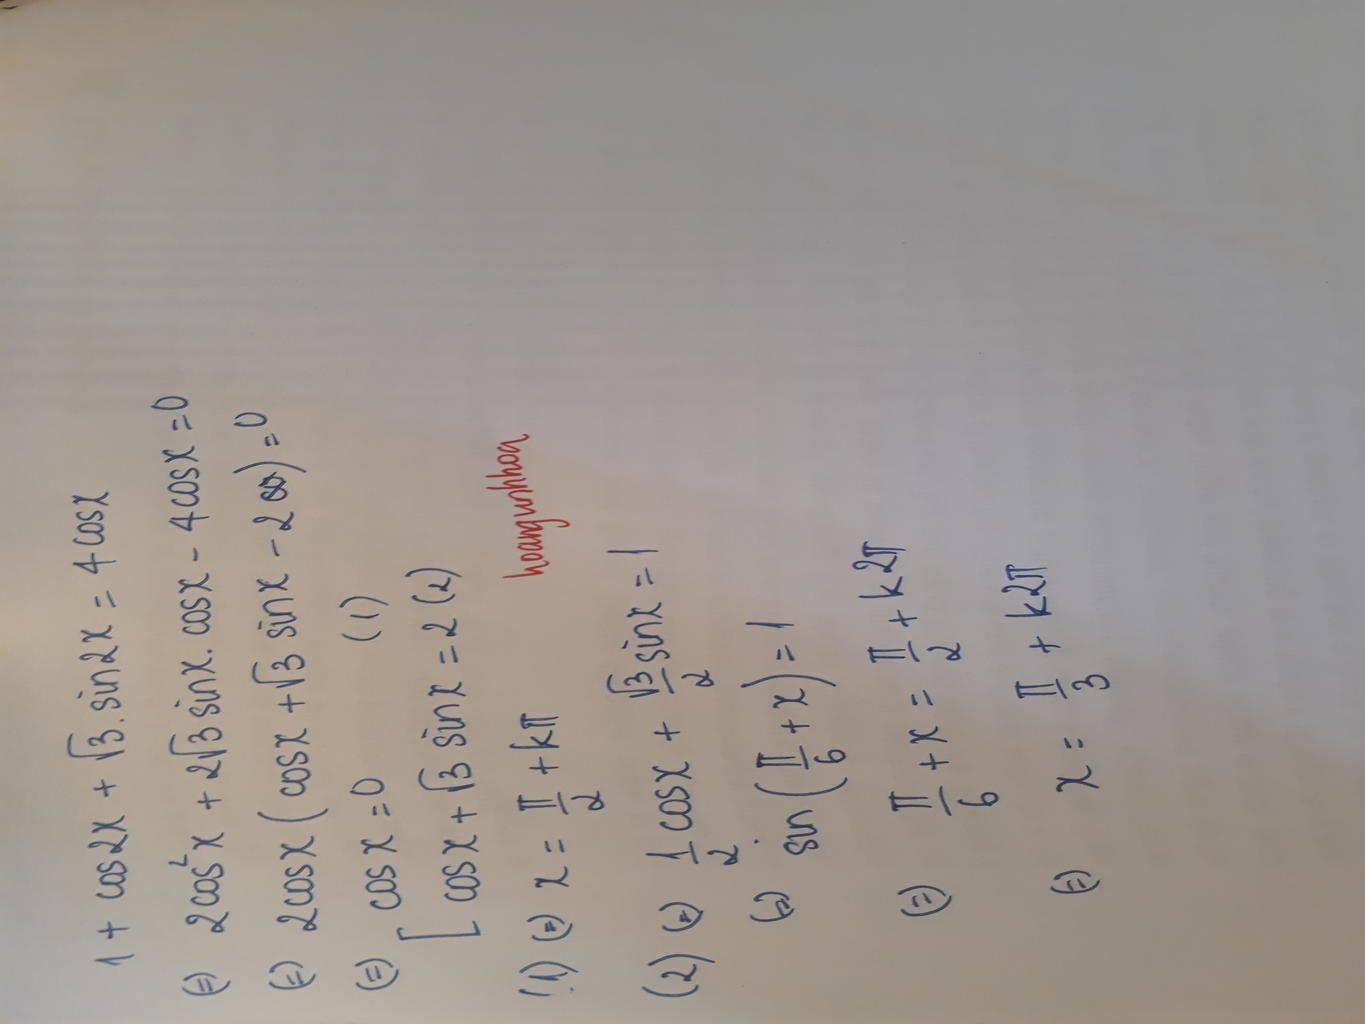 1 + cos2x + √3.sin2x = 4cosx
(=) 2cos²x + 2√3 sinx.cosx - 4cosx = 0
(=) 2cosx (cosx + √3 sinx - 2) = 0
(=) [ cosx = 0 (1)
cosx + √3 sinx = 2 (2)
(1) (=) x = π/2 + kπ
hoangunhhoa
(2) (=) 1/2 cosx + √3/2 sinx = 1
(=) sin(π/6 + x) = 1
(=) π/6 + x = π/2 + k2π
(=) x = π/3 + k2π